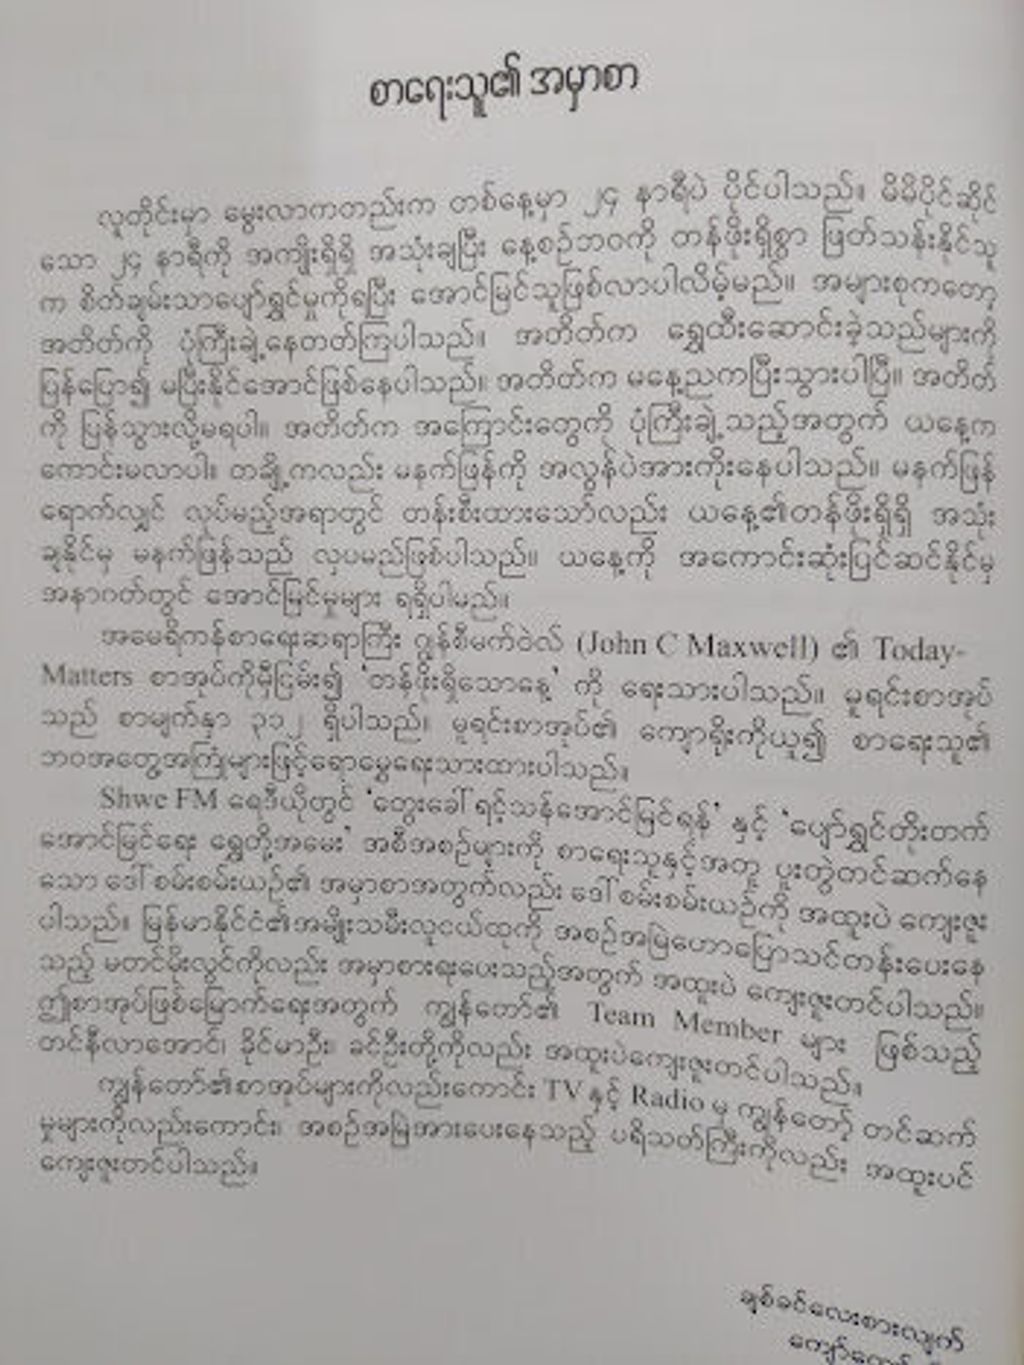 စာရေးသူ၏ အမှာစာ
လူတိုင်းမှာ မွေးလာကတည်းက တစ်နေ့မှာ ၂၄ နာရီပဲ ပိုင်ပါသည်။ မိမိပိုင်ဆိုင်
သော ၂၄ နာရီကို အကျိုးရှိရှိ အသုံးချပြီး နေ့စဉ်ဘဝကို တန်ဖိုးရှိစွာ ဖြတ်သန်းနိုင်သူ
က စိတ်ချမ်းသာပျော်ရွှင်မှုကိုရပြီး အောင်မြင်သူဖြစ်လာပါလိမ့်မည်။ အများစုကတော့
အတိတ်ကို ပုံကြီးချဲ့နေတတ်ကြပါသည်။ အတိတ်က ရွှေထီးဆောင်းခဲ့သည်များကို
ပြန်ပြော၍ မပြီးနိုင်အောင်ဖြစ်နေပါသည်။ အတိတ်က မနေ့ညကပြီးသွားပါပြီ။ အတိတ်
ကို ပြန်သွားလို့မရပါ။ အတိတ်က အကြောင်းတွေကို ပုံကြီးချဲ့သည့်အတွက် ယနေ့က
ကောင်းမလာပါ။ တချို့ကလည်း မနက်ဖြန်ကို အလွန်ပဲအားကိုးနေပါသည်။ မနက်ဖြန်
ရောက်လျှင် လုပ်မည့်အရာတွင် တန်းစီးထားသော်လည်း ယနေ့၏တန်ဖိုးရှိရှိ အသုံး
ချနိုင်မှ မနက်ဖြန်သည် လှပမည်ဖြစ်ပါသည်။ ယနေ့ကို အကောင်းဆုံးပြင်ဆင်နိုင်မှ
အနာဂတ်တွင် အောင်မြင်မှုများ ရရှိပါမည်။
အမေရိကန်စာရေးဆရာကြီး ဂျွန်စီမက်ဝဲလ် (John C Maxwell) ၏ Today-
Matters စာအုပ်ကိုမှီငြမ်း၍ 'တန်ဖိုးရှိသောနေ့' ကို ရေးသားပါသည်။ မူရင်းစာအုပ်
သည် စာမျက်နှာ ၃၁၂ ရှိပါသည်။ မူရင်းစာအုပ်၏ ကျောရိုးကိုယူ၍ စာရေးသူ၏
ဘဝအတွေ့အကြုံများဖြင့်ရောမွှေရေးသားထားပါသည်။
Shwe FM ရေဒီယိုတွင် 'တွေးခေါ် ရင့်သန်အောင်မြင်ရန်' နှင့် 'ပျော်ရွှင်တိုးတက်
အောင်မြင်ရေး ရွှေတို့အမေး' အစီအစဉ်များကို စာရေးသူနှင့်အတူ ပူးတွဲတင်ဆက်နေ
သော ဒေါ်စမ်းစမ်းယဉ်၏ အမှာစာအတွက်လည်း ဒေါ်စမ်းစမ်းယဉ်ကို အထူးပဲ ကျေးဇူး
ပါသည်။ မြန်မာနိုင်ငံ၏အမျိုးသမီးလူငယ်ထုကို အစဉ်အမြဲဟောပြောသင်တန်းပေးနေ
သည့် မတင်မိုးလွင်ကိုလည်း အမှာစားရးပေးသည့်အတွက် အထူးပဲ ကျေးဇူးတင်ပါသည်။
ဤစာအုပ်ဖြစ်မြောက်ရေးအတွက် ကျွန်တော်၏ Team Member များ ဖြစ်သည့်
တင်နီလာအောင်၊ ခိုင်မာဦး၊ ခင်ဦးတို့ကိုလည်း အထူးပဲကျေးဇူးတင်ပါသည်။
ကျွန်တော်၏စာအုပ်များကိုလည်းကောင်း TV နှင့် Radio မှ ကျွန်တော့် တင်ဆက်
မှုများကိုလည်းကောင်း၊ အစဉ်အမြဲအားပေးနေသည့် ပရိသတ်ကြီးကိုလည်း အထူးပင်
ကျေးဇူးတင်ပါသည်။
ချစ်ခင်လေးစားလျက်